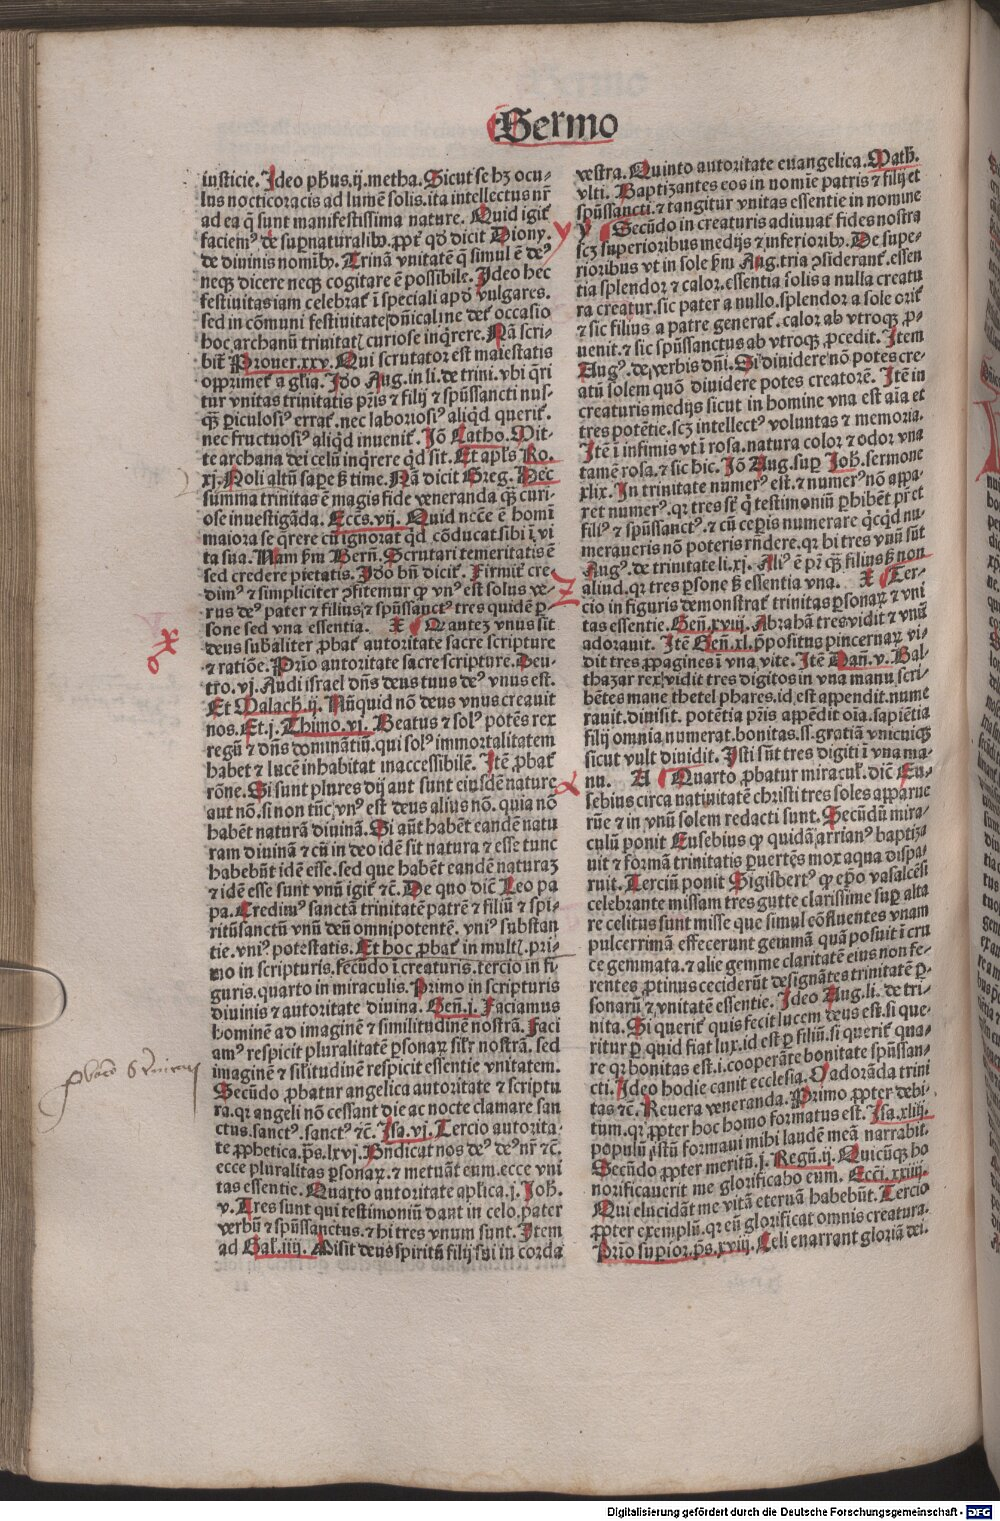 Sermo
iusticie. Ideo phūs.ij.metha. Sicut se hꝫ ocu-
lus nocticoracis ad lumē solis.ita intellectus nr̄
ad ea q̄ sunt manifestissima nature. Quid igit̃
faciemꝰ de suꝑnaturalibꝰ. ꝓpt̃ qd̓ dicit Diony.
de diuinis nomībꝰ. Trinā vnitatē q̄ simul ē deꝰ
neqꝫ dicere neqꝫ cogitare ē possibile. Ideo hec
festiuitas iam celebrat̃ ī speciali apd̓ vulgares.
sed in cōmuni festiuitate dn̄icali ne det̃ occasio
hoc archanū trinitatꝭ curiose inq̄rere. Nā scri-
bit̃ Prouer.xxv. Qui scrutator est maiestatis
opprimet̃ a gl̄ia. Ido Aug.in li.de trini.vbi q̄ri
tur vnitas trinitatis pr̄is ⁊ filij ⁊ spūssancti nus-
qꝫ̄ ꝑiculosiꝰ errat̃.nec laboriosiꝰ aliqd̓ querit̃.
nec fructuosiꝰ aliqd̓ inuenit̃. Iō Catho. Mit-
te archana dei celū inq̄rere qd̓ sit. Et apl̄s Ro.
xj. Noli altū saꝑe sꝫ time. Nā dicit Greg. Nec
summa trinitas ē magis fide veneranda qꝫ̄ curi-
ose inuestigāda. Eccs̄.vij. Quid ncēe ē homī
maiora se q̄rere cū ignorat qd̓ cōducat sibi ī vi
ta sua. Nam s̄m Bern̄. Scrutari temeritatis ē
sed credere pietatis. Ido bn̄ dicit̃. Firmit̃ cre-
dimꝰ ⁊ simpliciter ꝯfitemur ꝙ vnꝰ est solus ve-
rus deꝰ pater ⁊ filius ⁊ spūssanctꝰ tres quidē ꝑ-
sone sed vna essentia. X Q autez vnus sit
deus subaliter ꝓbat̃ autoritate sacre scripture
⁊ ratiōe. Prīo autoritate sacre scripture. Deu-
tro.vj. Audi israel dn̄s deus tuus deꝰ vnus est.
Et Malach.ij. Nūquid nō deus vnus creauit
nos. Et.j. Thimo.vi. Beatus ⁊ solꝰ potēs rex
regū ⁊ dn̄s domināntiū.qui solꝰ immortalitatem
habet ⁊ lucē inhabitat inaccessibilē. Itē ꝓbat̃
rōne. Si sunt plures dij aut sunt eiusdē nature
aut nō.si non tūc vnꝰ est deus alius nō. quia nō
habēt naturā diuinā. Si aūt habēt eandē natu
ram diuinā ⁊ cū in deo idē sit natura ⁊ esse tunc
habebūt idē esse.sed que habēt eandē naturaꝫ
⁊ idē esse sunt vnū igit̃ ⁊c̄. De quo dic̄ Leo pa
pa. Credimꝰ sanctā trinitatē patrē ⁊ filiū ⁊ spi-
ritūsanctū vnū deū omnipotentē. vniꝰ substan
tie.vniꝰ potestatis. Et hoc ꝓbat̃ in multꝭ. pri-
mo in scripturis.secūdo ī creaturis.tercio in fi-
guris.quarto in miraculis. Primo in scripturis
diuinis ⁊ autoritate diuina. Gen̄.i. Faciamus
hominē ad imaginē ⁊ similitudinē nostrā. Faci
amꝰ respicit pluralitatē ꝑsonaꝝ silr̄ nostrā. sed
imaginē ⁊ silitudinē respicit essentie vnitatem.
Secūdo ꝓbatur angelica autoritate ⁊ scriptu
ra.qꝛ angeli nō cessant die ac nocte clamare san
ctus.sanctꝰ.sanctꝰ ⁊c̄. Isa.vj. Tercio autorita-
te ꝓphetica.ps̄.lxvj. Bn̄dicat nos deꝰ deꝰ nr̄ ⁊c̄.
ecce pluralitas ꝑsonaꝝ.⁊ metuāt eum.ecce vni
tas essentie. Quarto autoritate apl̄ica.j. Joh̄.
v. Tres sunt qui testimoniū dant in celo.pater
verbū ⁊ spūssanctus.⁊ hi tres vnum sunt. Item
ad Gal̄.iiij. Misit deus spiritū filij sui in corda
vestra. Quinto autoritate euangelica. Math̄.
vlti. Baptizantes eos in noīe patris ⁊ filij et
spūssancti.⁊ tangitur vnitas essentie in nomine
y Secūdo in creaturis adiuuat̃ fides nostra
scꝫ superioribus medijs ⁊ inferioribꝰ. De supe-
rioribus vt in sole s̄m Aug.tria ꝯsiderant̃.essen
tia splendor ⁊ calor.essentia solis a nulla creatu
ra creatur.sic pater a nullo.splendor a sole orit̃
⁊ sic filius a patre generat̃.calor ab vtroqꝫ ꝓ-
uenit.⁊ sic spūssanctus ab vtroqꝫ ꝓcedit. Item
Augꝰ.de verbis dn̄i. Si diuidere nō potes cre-
atū solem quō diuidere potes creatorē. Itē in
creaturis medijs sicut in homine vna est aīa et
tres potētie.scꝫ intellectꝰ voluntas ⁊ memoria.
Itē ī infimis vt ī rosa.natura color ⁊ odor vna
tamē rosa.⁊ sic hic. Iō Aug.suꝑ Joh̄.sermone
xlix. In trinitate numerꝰ est.⁊ numerꝰ nō appa-
ret numerꝰ.qꝛ tres st̄ q̄ testimoniū ꝑhibēt pr̄ et
filiꝰ ⁊ spūssanctꝰ.⁊ cū ceꝑis numerare qc̄qd̓ nu-
merqueris nō poteris rn̄dere.qꝛ hi tres vnū sūt
Augꝰ.de trinitate li.xj. Aliꝰ ē pr̄ qꝫ̄ filius sꝫ non
aliud.qꝛ tres ꝑsone sꝫ essentia vna. X Ter-
cio in figuris demonstrat̃ trinitas ꝑsonaꝝ ⁊ vni
tas essentie. Gen̄.xviij. Abrahā tres vidit ⁊ vnū
adorauit. Itē Gen̄.xl.p̄positus pincernaꝝ vi-
dit tres ꝓpagines ī vna vite. Itē Dan̄.v. Bal-
thazar rex vidit tres digitos in vna manu scri-
bētes mane thetel phares.id est appendit.nume
rauit.diuisit. potētia pr̄is appēdit oīa.sapiētia
filij omnia numerat.bonitas.ss.gratiā vnicuiqꝫ
sicut vult diuidit. Isti sūt tres digiti ī vna ma-
nu. A Quarto ꝓbatur miracul̄. dic̄ Eu-
sebius circa natiuitatē christi tres soles apparue
rūt ⁊ in vnū solem redacti sunt. Secūdū mira-
culū ponit Eusebius ꝙ quidā arrianꝰ baptiza
uit ⁊ formā trinitatis ꝑuertēs mox aqua dispa-
ruit. Terciū ponit Sigisbertꝰ ꝙ ep̄o vasalcēsi
celebrante missam tres gutte clarissime suꝑ alta
re celitus sunt misse que simul cōfluentes vnam
pulcerrimā effecerunt gemmā quā posuit ī cru
ce gemmata.⁊ alie gemme claritatē eius non fe-
rentes ꝓtinus ceciderūt designātes trinitatē ꝑ-
sonarū ⁊ vnitatē essentie. Ideo Aug.li.de tri-
nita. Si querit̃ quis fecit lucem deus est.si que-
ritur ꝑ quid fiat lux.id est ꝑ filiū.si querit̃ qua-
re qꝛ bonitas est.i.cooperāte bonitate spūssan-
cti. Ideo hodie canit ecclesia. O adorāda trini
tas ⁊c̄. Reuera veneranda. Primo ꝓpter debi-
tum.qꝛ ꝓpter hoc homo formatus est. Isa.xliij.
populū istū formaui mihi laudē meā narrabit.
Secūdo ꝓpter meritū.j. Regū.ij. Quicūqꝫ ho
norificauerit me glorificabo eum. Ecc̄i.xxiiij.
Qui elucidāt me vitā eternā habebūt. Tercio
ꝓpter exemplū.qꝛ eū glorificat omnis creatura.
Prīo supior.ps̄.xviij. Celi enarrant gloriā dei.
Digitalisierung gefördert durch die Deutsche Forschungsgemeinschaft - DFG